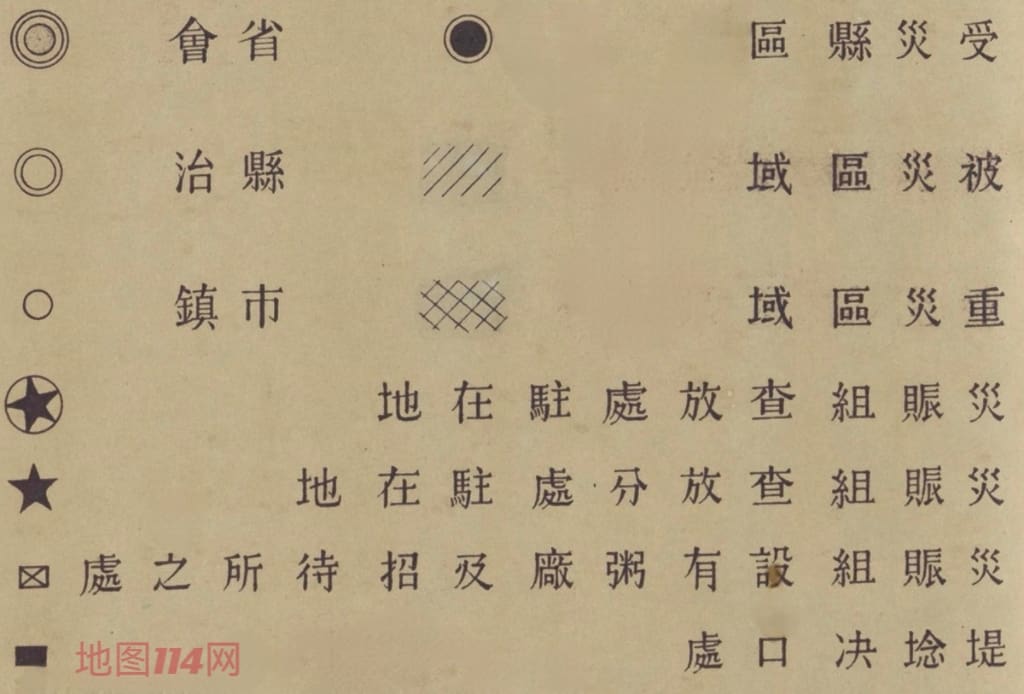 受災縣區
省會
被災區域
縣治
重災區域
市鎮
災賑組查放處駐在地
災賑組查放分處駐在地
災賑組設有粥廠及招待所之處
堤埝决口處
地图114网